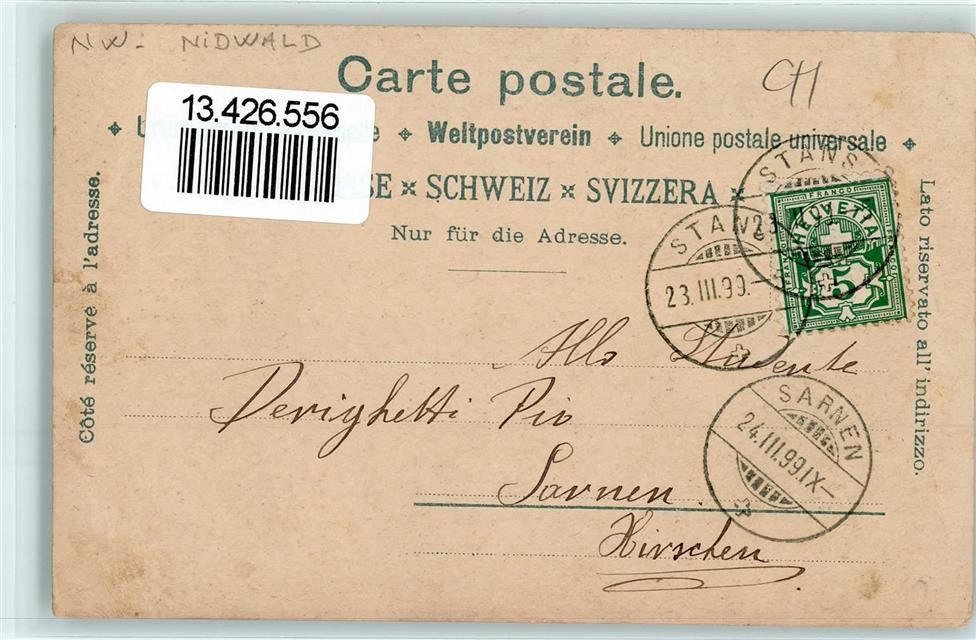 NW- NIDWALD
Carte postale.
CH
13.426.556
Weltpostverein Unione postale universale
SCHWEIZ SVIZZERA
Nur für die Adresse.
Côté réservé à l'adresse.
Lato riservato all' indirizzo.
STANS
STANS
23.III.99.-
FRANCO
HELVETIA
5
Allo Studente
Derighetti Pio
Sarnen
Hirschen
SARNEN
24.III.99.IX-